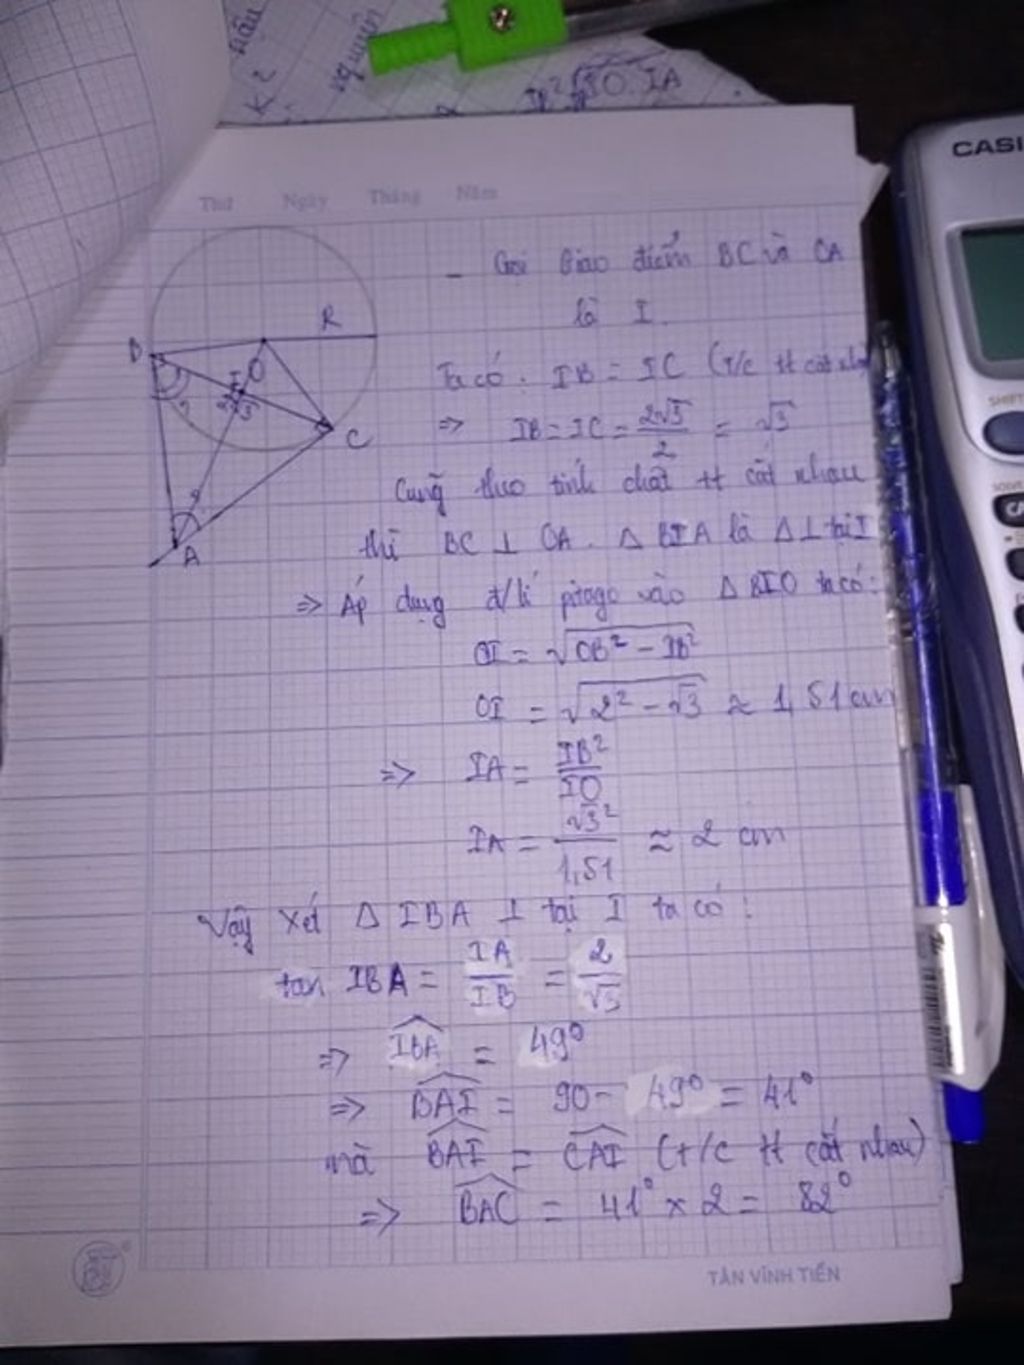 IB² IO.IA
CASI
Thứ Ngày Tháng Năm
- Gọi Giao điểm BC và OA
là I.
Ta có: IB = IC (T/c tt cắt nhau
=> IB = IC = 2√3/2 = √3
Cũng theo tính chất tt cắt nhau
thì BC ⊥ OA. Δ BIA là Δ ⊥ tại I
=> Áp dụng đ/lí pitago vào Δ BIO ta có:
OI = √OB² - IB²
OI = √2² - √3 ≈ 1,51 cm
=> IA = IB²/IO
IA = √3²/1,51 ≈ 2 cm
Vậy xét Δ IBA ⊥ tại I ta có:
tan IBA = IA/IB = 2/√3
=> IBA = 49°
=> BAI = 90 - 49° = 41°
mà BAI = CAI (t/c tt cắt nhau)
=> BAC = 41° x 2 = 82°
B
R
O
C
A
TÂN VĨNH TIẾN
SHIFT